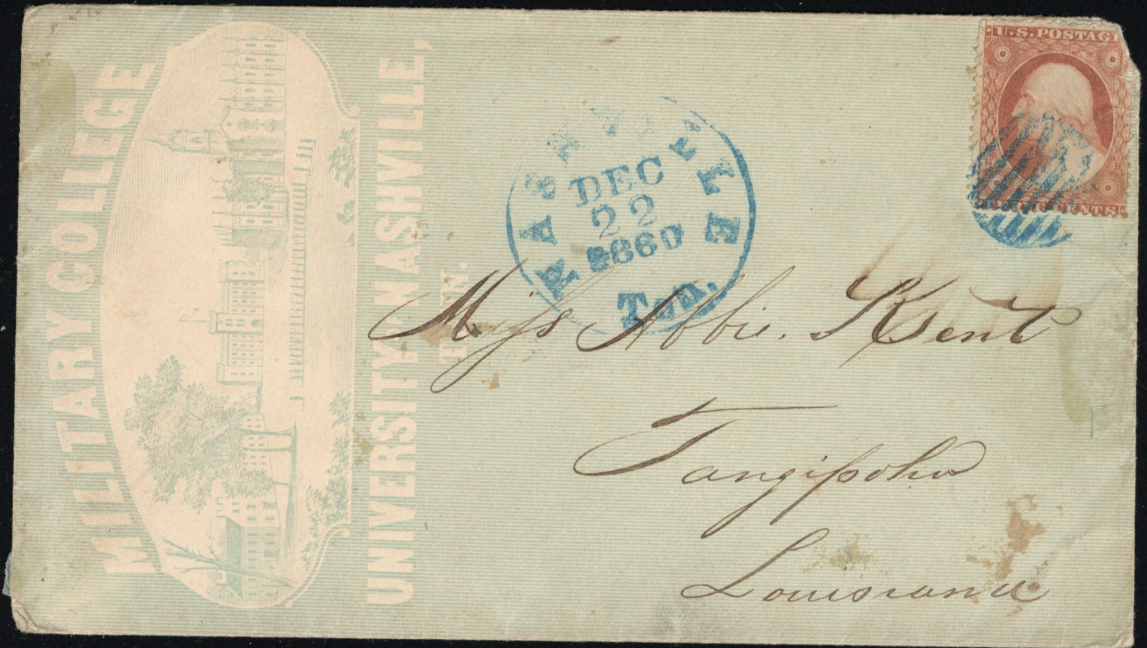 MILITARY COLLEGE
UNIVERSITY NASHVILLE,
TENN.
NASHVILLE
DEC
22
1860
Ten.
U.S. POSTAGE
CENTS.
Miss Abbie. Kent
Tangipoho
Louisiana